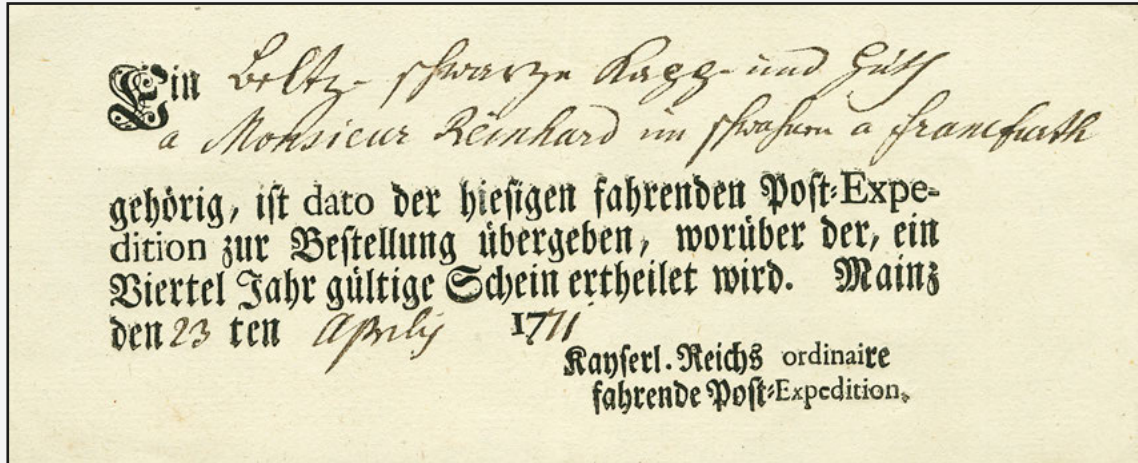 Ein Beltz- schwarze Kapp- und Huth
a Monsieur Reinhard im schwanen a francfurth
gehörig, ist dato der hiesigen fahrenden Post-Expe-
dition zur Bestellung übergeben, worüber der, ein
Viertel Jahr gültige Schein ertheilet wird. Mainz
den 23 ten Aprilis 1771
Kayserl. Reichs ordinaire
fahrende Post-Expedition.